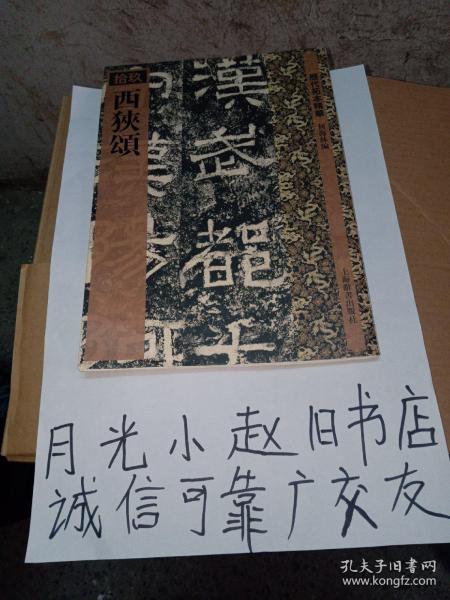 拾玖
西狹頌
漢武都
歷代拓本精華
上海辭書出版社
月光小赵旧书店
诚信可靠广交友
孔夫子旧书网
www.kongfz.com